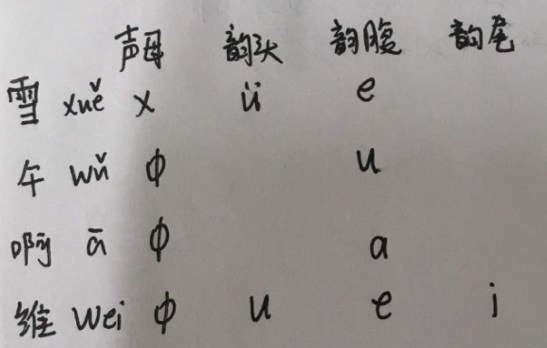 声母 韵头 韵腹 韵尾
雪 xuě x ü e
午 wǔ φ u
啊 ā φ a
维 wei φ u e i